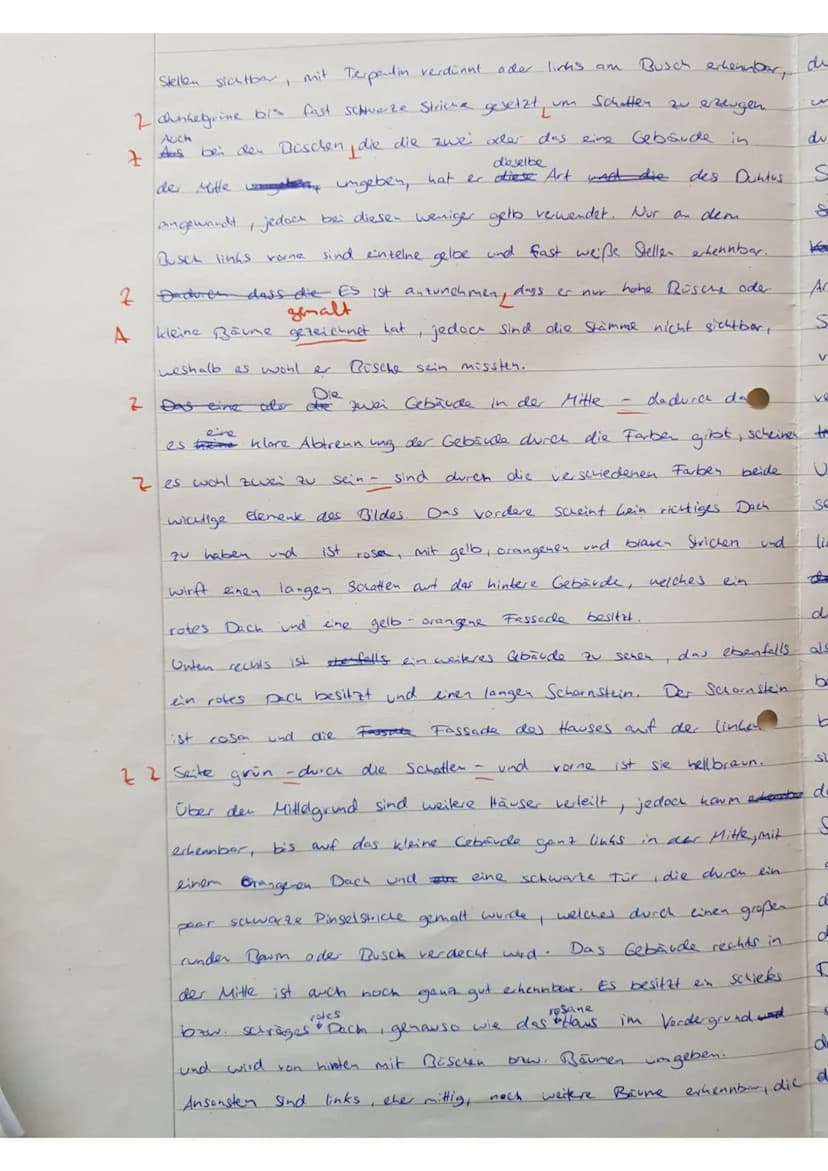 Stellen sichtbar, mit Terpentin verdünnt oder links am Busch erkennbar,
Z dunkelgrüne bis fast schwarze Striche gesetzt, um Schatten zu erzeugen
Auch
Z Aus bei den Büschen, die die zwei oder das eine Gebäude in
dieselbe
der Mitte umgeben, hat er diese Art und die des Duktus
angewandt, jedoch bei diesen weniger gelb verwendet. Nur an dem
Busch links vorne sind einzelne gelbe und fast weiße Stellen erkennbar.
Z Dadurch dass die Es ist anzunehmen, dass er nur hohe Büsche oder
gemalt
A kleine Bäume gezeichnet hat, jedoch sind die Stämme nicht sichtbar,
weshalb es wohl er Büsche sein müssten.
Die
Z Das eine oder die zwei Gebäude in der Mitte – dadurch da
eine
es keine klare Abtrennung der Gebäude durch die Farben gibt, scheinen
Z es wohl zwei zu sein – sind durch die verschiedenen Farben beide
wichtige Elemente des Bildes. Das vordere scheint kein richtiges Dach
zu haben und ist rosa, mit gelb, orangenen und blauen Strichen und
wirft einen langen Schatten auf das hintere Gebäude, welches ein
rotes Dach und eine gelb-orangene Fassade besitzt.
Unten rechts ist ebenfalls ein weiteres Gebäude zu sehen, das ebenfalls
ein rotes Dach besitzt und einen langen Schornstein. Der Schornstein
ist rosa und die Fassade Fassade des Hauses auf der linken
Z Z Seite grün – durch die Schatten – und vorne ist sie hellbraun.
Über den Mittelgrund sind weitere Häuser verteilt, jedoch kaum erkennbar
erkennbar, bis auf das kleine Gebäude ganz links in der Mitte, mit
einem orangenen Dach und eine schwarze Tür, die durch ein
paar schwarze Pinselstriche gemalt wurde, welches durch einen großen
runden Baum oder Busch verdeckt wird. Das Gebäude rechts in
der Mitte ist auch noch ganz gut erkennbar. Es besitzt ein schiefes
rotes rosane
bzw. schräges Dach, genauso wie das Haus im Vordergrund und
und wird von hinten mit Büschen bzw. Bäumen umgeben.
Ansonsten sind links, eher mittig, noch weitere Bäume erkennbar, die